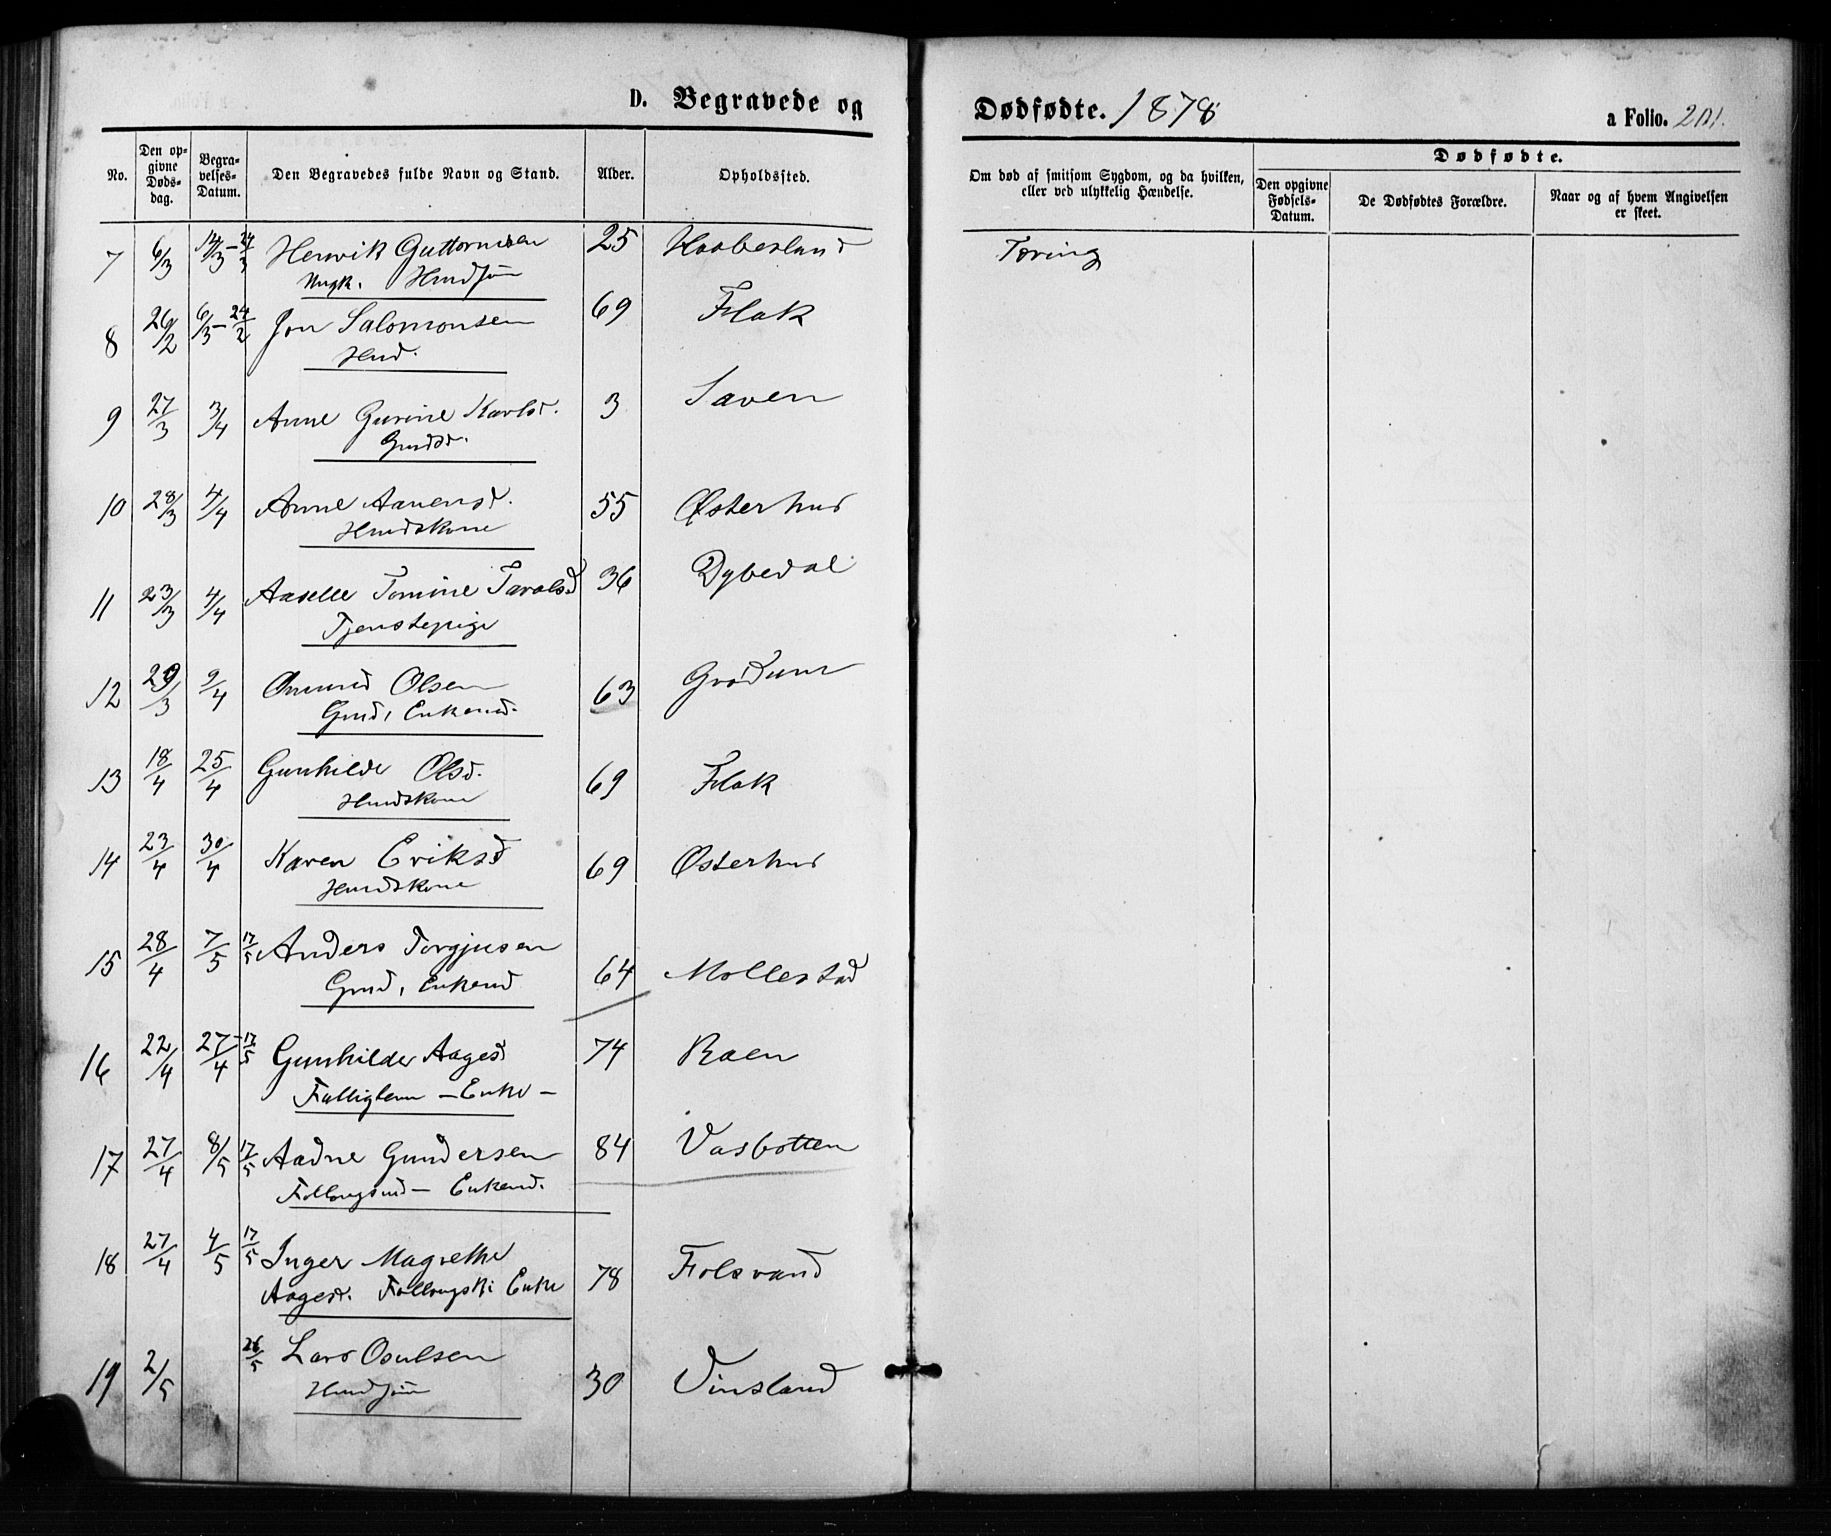 D. Begravede og
Dødfødte. 1878
a Folio. 201.
No.
Den opgivne Dødsdag.
Begravelses-Datum.
Den Begravedes fulde Navn og Stand.
Alder.
Opholdssted.
Om død af smitsom Sygdom, og da hvilken, eller ved ulykkelig Hændelse.
Dødfødte.
Den opgivne Fødsels-Datum.
De Dødfødtes Forældre.
Naar og af hvem Angivelsen er skeet.
7 6/3 14/3 – 24/3 Henrik Guttormsen 25 Haabesland Tæring
Ungk.
8 26/2 6/3 – 24/2 Jon Salomonsen 69 Flak
Hmd.
9 27/3 3/4 Anne Gurine Karlsd. 3 Saven
Gmdsd.
10 28/3 4/4 Anne Aanensd. 55 Østerhus
Hmdskone
11 23/3 4/4 Aaselle Tomine Taralsd 36 Dybedal
Tjenstepige
12 29/3 9/4 Omund Olsen 63 Grødum
Gmd, Enkemd.
13 18/4 25/4 Gunhilde Olsd. 69 Flak
Hmdskone
14 23/4 30/4 Karen Eriksd 69 Østerhus
Hmdskone
15 28/4 7/5 17/5 Anders Torgjusen 64 Mollestad
Gmd, Enkemd
16 22/4 27/4 – 17/5 Gunhilde Aagesd 74 Raen
Fattiglem – Enke –
17 27/4 8/5 17/5 Aadne Gundersen 84 Vasbotten
Follougsmd – Enkemd.
18 27/4 4/5 17/5 Inger Magrethe
Aagesd. Follougsk. Enke 78 Folsvand
19 2/5 26/5 Lars Osulsen 30 Vinsland